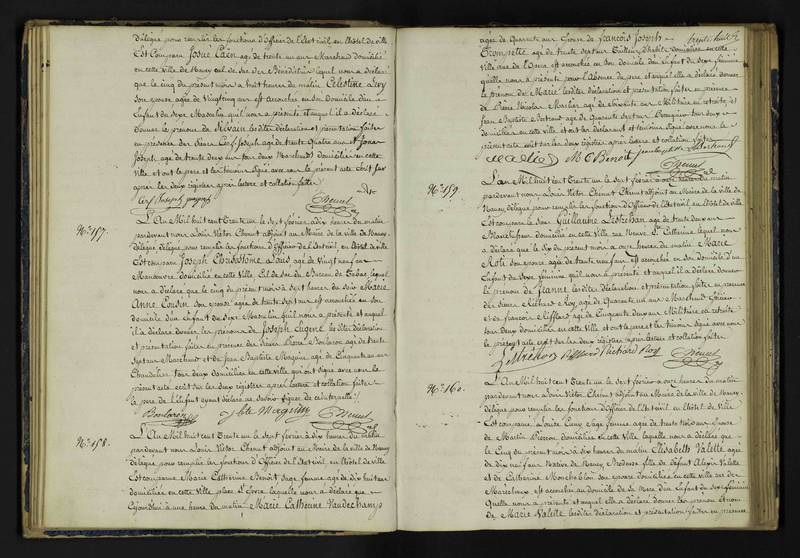 délégué pour remplir les fonctions d'Officier de l'Etat civil, en l'hôtel de ville
Est Comparu Josué Caën agé de trente un ans Marchand domicilié
en cette ville de Nancy cul de sac des Bénédictins lequel nous a déclaré
que le cinq du présent mois à huit heures du matin Célestine Levy
son épouse agée de vingt cinq ans est accouchée en son domicile d'un
Enfant du sexe Masculin qu'il nous a présenté et auquel il a déclaré
donner le prénom de Silvain lesdites déclaration et présentation faites
en présence des Sieurs Cerf Joseph agé de trente quatre ans et Jonas
Joseph agé de trente deux ans tous deux Marchands domiciliés en cette
ville et ont le père et les témoins signé avec nous le présent acte écrit sur
après les deux registres après lecture et collation faites
No. 157.
L'An Mil huit cent Trente un le Sept février à dix heures du matin
pardevant nous Louis Victor Chenut adjoint au Maire de la ville de Nancy
délégué pour remplir les fonctions d'Officier de l'Etat civil, en l'hôtel de ville
Est comparu Joseph Chrisostome Louis agé de vingt neuf ans
Manœuvre domicilié en cette ville Cul de sac du Bureau de Tabac lequel
nous a déclaré que le cinq du présent mois à sept heures du soir Marie
Anne Cousin son épouse agée de trente sept ans est accouchée en son
domicile d'un Enfant du sexe Masculin qu'il nous a présenté et auquel
il a déclaré donner les prénoms de Joseph Eugène lesdites déclaration
et présentation faites en présence des Sieurs agé de trente
sept ans Marchand et de Jean Baptiste Maguin agé de Cinquante un ans
Chandelier tous deux domiciliés en cette ville qui ont signé avec nous le
présent acte écrit sur les deux registres après lecture et collation faites
le père de l'Enfant ayant déclaré ne savoir signer de ce interpellé
Jbte Maguin Chenut
No. 158.
L'An Mil huit cent Trente un le Sept février à dix heures du matin
pardevant nous Louis Victor Chenut adjoint au Maire de la ville de Nancy
délégué pour remplir les fonctions d'Officier de l'Etat civil, en l'hôtel de ville
Est comparue Marie Catherine Benoit Sage femme agée de dix huit ans
domiciliée en cette ville place St. Epvre laquelle nous a déclaré que
Cejourd'hui à une heure du matin Marie Catherine Vaudechamps
agée de Quarante ans Epouse de françois Joseph
Trompette agé de trente sept ans Tailleur d'habits domicilié en cette
Ville est accouchée en son domicile d'un Enfant du sexe féminin
quelle nous a présenté pour l'absence du père et auquel elle a déclaré donner
le prénom de Marie lesdites déclaration et présentation faites en présence
de Pierre Nicolas agé de soixante ans Militaire en retraite et
Jean Baptiste Bertrand agé de Quarante sept ans tous deux
domiciliés en cette ville et ont les déclarant et témoins signé avec nous le
présent acte écrit sur les deux registres après lecture et collation faites
M C Benoit Chenut
No. 159.
L'an Mil huit cent Trente un le Sept février à onze heures du matin
pardevant nous Louis Victor Chenut adjoint au Maire de la ville de
Nancy délégué pour remplir les fonctions d'Officier de l'Etat civil, en l'hôtel de ville
Est comparu le Sieur Guillaume Lestrehan agé de trente deux ans
domicilié en cette Ville rue Neuve Ste Catherine lequel nous a
déclaré que le Six du présent mois à onze heures du matin Marie
Rosé son épouse agée de trente neuf ans est accouchée en son domicile d'un
Enfant du Sexe féminin qu'il nous a présenté et auquel il a déclaré donner
le prénom de Jeanne lesdites déclaration et présentation faites en présence
des Sieurs Richard Roy agé de Quarante un ans Marchand
et de françois agé de Cinquante deux ans Militaire en retraite
tous deux domiciliés en cette ville, et ont le père et les témoins signé avec nous
le présent acte écrit sur les deux registres après lecture et collation faites
Lestréhan Richard Roy Chenut
No. 160.
L'An Mil huit cent Trente un le Sept février à onze heures du matin
pardevant nous Louis Victor Chenut adjoint au Maire de la ville de Nancy
délégué pour remplir les fonctions d'Officier de l'Etat civil en l'hôtel de ville
Est comparue Louise Cuny Sage femme agée de trente trois ans Epouse
de Martin Pierron domiciliée en cette Ville laquelle nous a déclaré que
le Cinq du présent mois à dix heures du matin Elisabeth Valette agée
de dix neuf ans Native de Nancy Brodeuse fille de défunt Alexis Valette
et de Catherine Monchablon son épouse domiciliée en cette ville rue des
Maréchaux est accouchée au domicile de sa Mère d'un Enfant du Sexe féminin
Quelle nous a présenté et auquel elle a déclaré donner les prénom et nom
de Marie Valette lesdites déclaration et présentation faites en présence